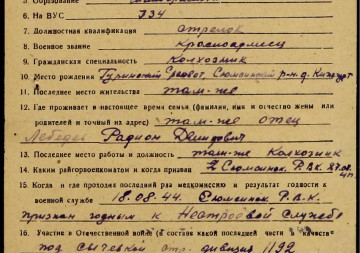 5. Образование
6. На ВУС 134
7. Должностная квалификация стрелок
8. Военное звание красноармеец
9. Гражданская специальность колхозник
10. Место рождения Сюмсинский р-н д.
11. Последнее место жительства там-же
12. Где проживает в настоящее время семья (фамилия, имя и отчество жены или
родителей и точный их адрес) там-же отец
Лебедев Радион
13. Последнее место работы и должность там-же Колхозник
14. Каким райгорвоенкоматом и когда призван Сюмсинск. Р.В.К.
15. Когда и где проходил последний раз медкомиссию и результат годности к
военной службе 18.08.44. Сюмсинск. Р.В.К.
признан годным к Нестроевой службе
16. Участие в Отечественной войне (в составе какой последней части и в качестве
под Сычевкой стр. дивизия 1192